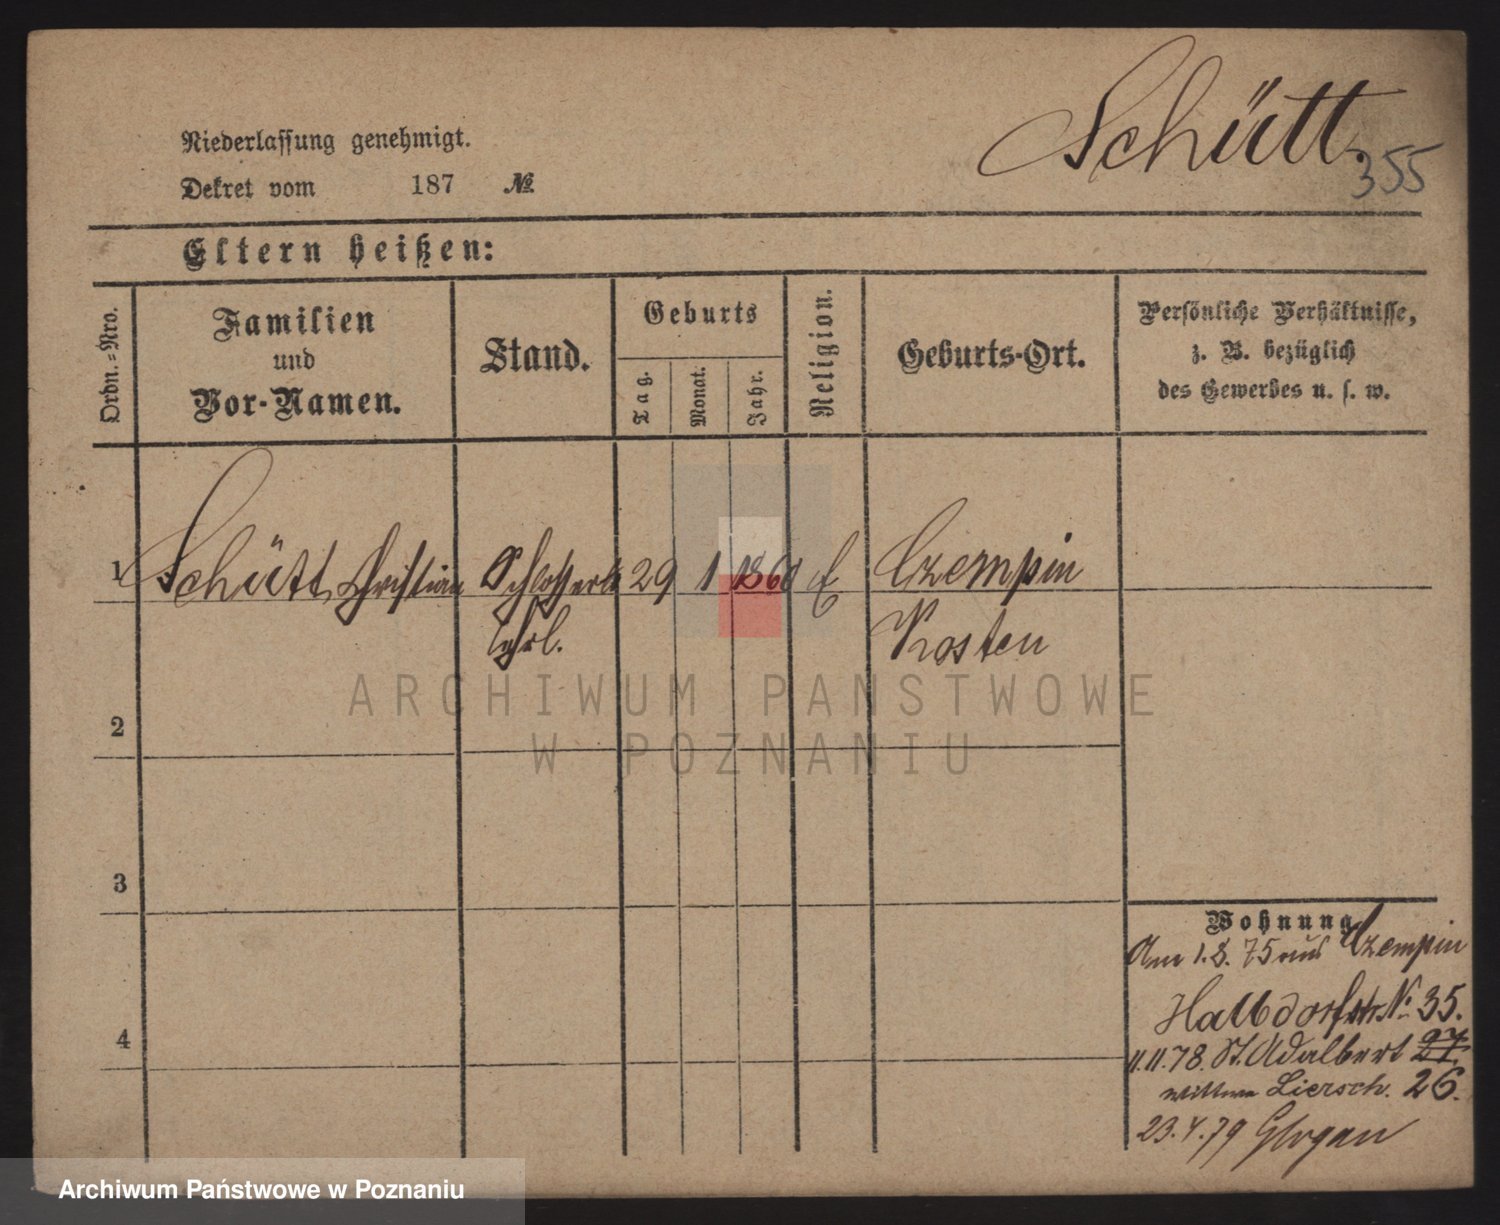 Schütt.
355
Niederlassung genehmigt.
Dekret vom 187 №
Eltern heißen:
Ordn.-Nro.
Familien
und
Vor-Namen.
Stand.
Geburts
Tag.
Monat.
Jahr.
Religion.
Geburts-Ort.
Persönliche Verhältnisse,
z. B. bezüglich
des Gewerbes u. s. w.
1 Schütt, Christian Schlosser 29 1 186 E Czempin
Lehrl. Kosten
2
3
4
Wohnung
Am 1.8.75 aus Czempin
Halbdorfstr No 35.
11.11.78. St. Adalbert 27.
Wittwe Liersch. 26.
23.4.79 Glogau
ARCHIWUM PAŃSTWOWE
W POZNANIU
Archiwum Państwowe w Poznaniu